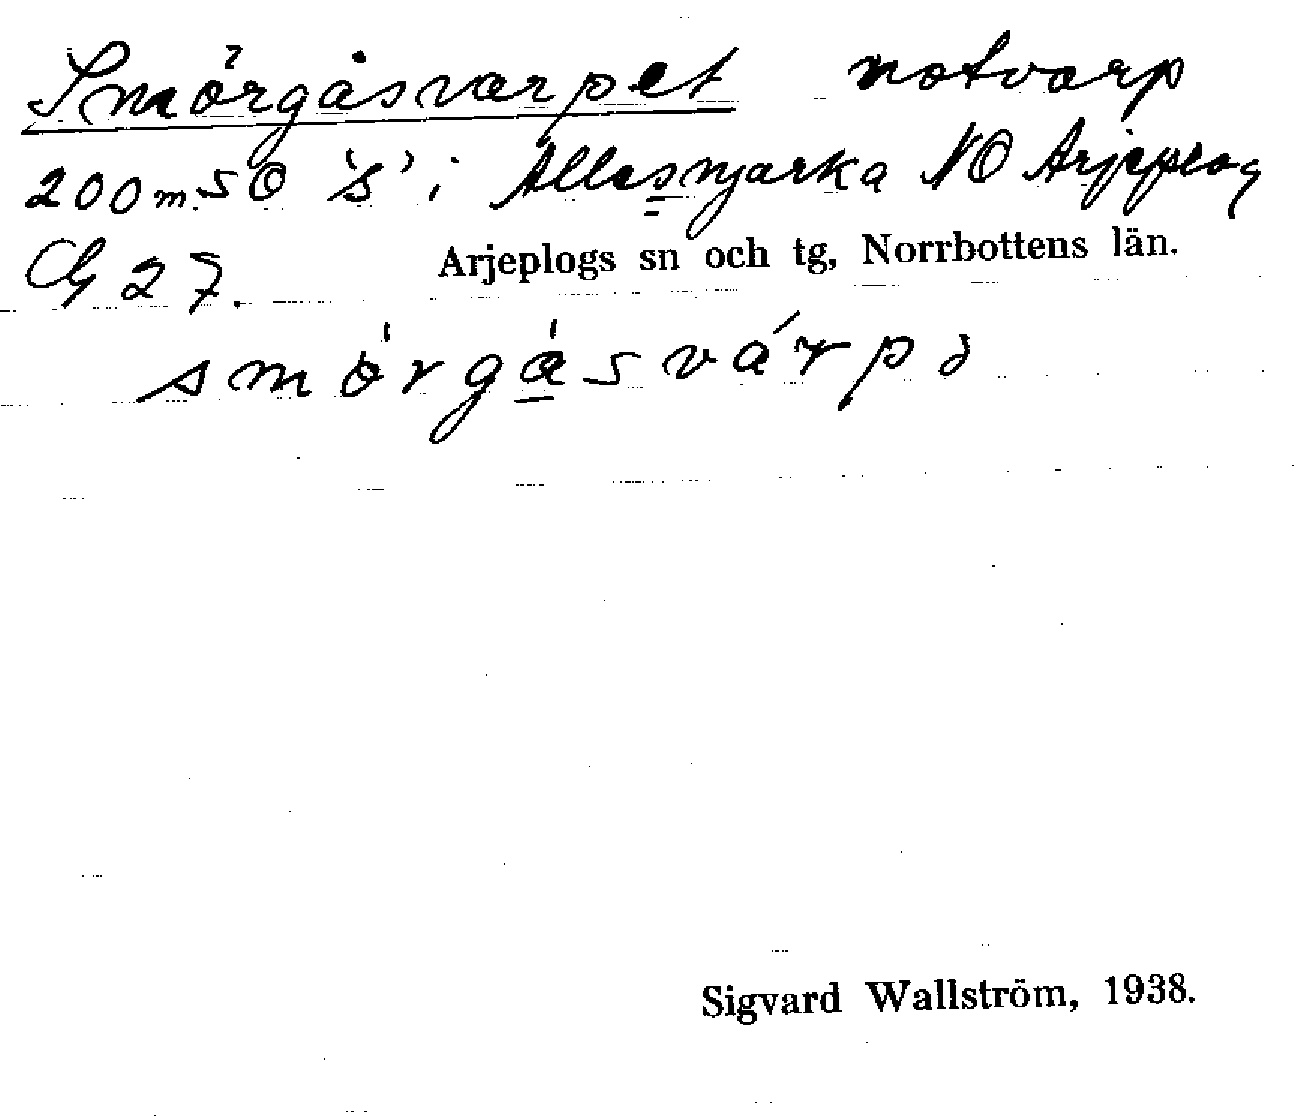 Smörgåsvarpet notvarp
200 m SO 'S' i Allesnjarka NO Arjeplog
G 27. Arjeplogs sn och tg, Norrbottens län.
smörgåsvárpə
Sigvard Wallström, 1938.